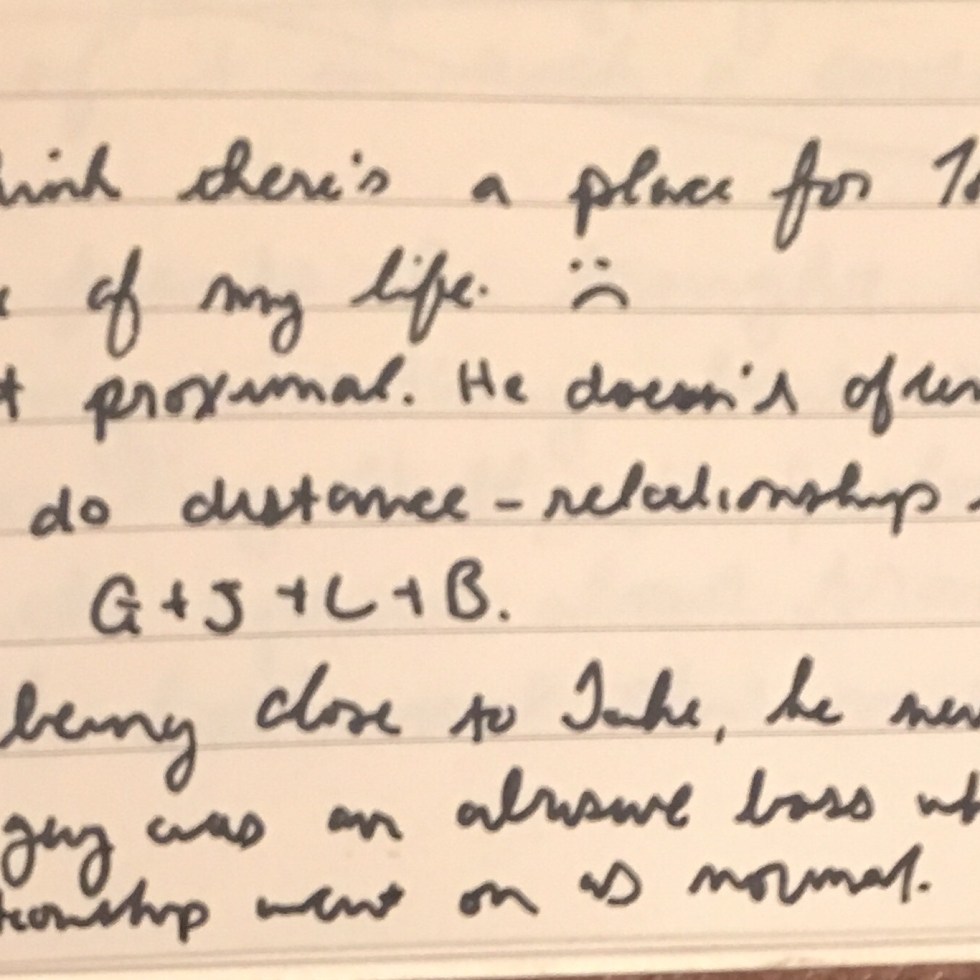 there's a place for
of my life. :(
proximal. He doesn't often
do distance - relationship
G + J + L + B.
being close to Jake, he
guy was an abusive boss
went on as normal.